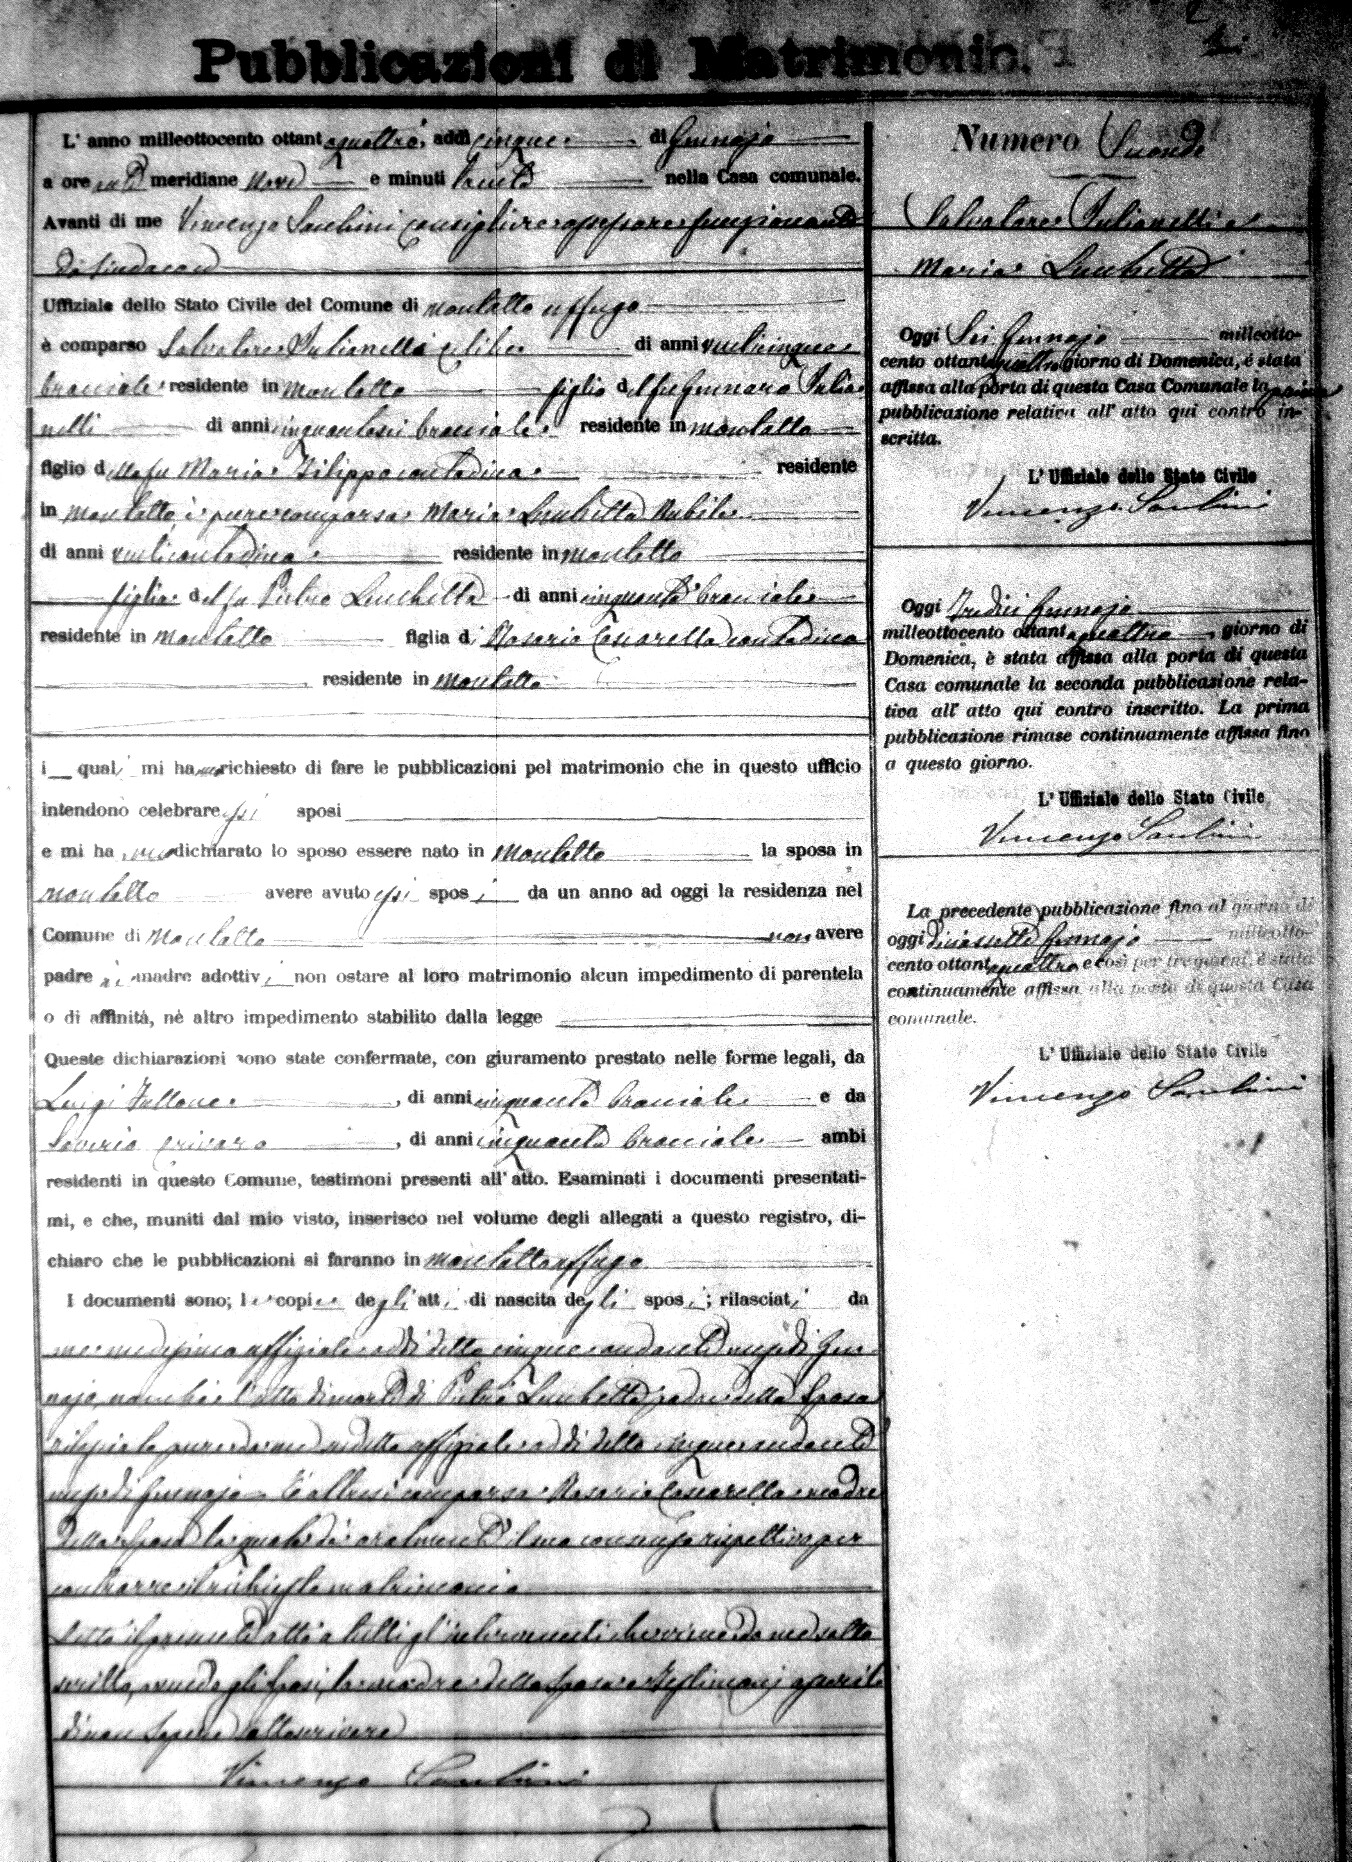 Pubblicazioni di Matrimonio.
L' anno milleottocento ottantaquattro, addì cinque di Gennajo
a ore anti meridiane nove e minuti trenta nella Casa comunale.
Avanti di me Vincenzo consigliere assessore funzionante
da Sindaco
Uffiziale dello Stato Civile del Comune di Montalto Uffugo
è comparso Salvatore Iulianelli celibe di anni venticinque
bracciale residente in Montalto figlio del fu Gennaro Iulia
nelli di anni cinquantasei bracciale residente in Montalto
figlio della fu Maria Filippo contadina residente
in Montalto è pure comparsa Maria Luchetta Nubile
di anni venti contadina residente in Montalto
figlia del fu Pietro Luchetta di anni cinquanta bracciale
residente in Montalto figlia di Rosaria Casarella contadina
residente in Montalto
i quali mi hanno richiesto di fare le pubblicazioni pel matrimonio che in questo ufficio
intendono celebrare essi sposi
e mi hanno dichiarato lo sposo essere nato in Montalto la sposa in
Montalto avere avuto essi sposi da un anno ad oggi la residenza nel
Comune di Montalto non avere
padre ne madre adottivi non ostare al loro matrimonio alcun impedimento di parentela
o di affinità, nè altro impedimento stabilito dalla legge
Queste dichiarazioni sono state confermate, con giuramento prestato nelle forme legali, da
Luigi di anni cinquanta bracciale e da
Saverio Crivaro, di anni cinquanta bracciale ambi
residenti in questo Comune, testimoni presenti all' atto. Esaminati i documenti presentati-
mi, e che, muniti dal mio visto, inserisco nel volume degli allegati a questo registro, di-
chiaro che le pubblicazioni si faranno in Montalto Uffugo
I documenti sono; le copie degli atti di nascita degli sposi; rilasciati da
me medesimo uffiziale addi detto cinque andante mese di Gen
najo, nonchè l'atto di morte di Pietro Luchetta padre della Sposa
rilasciato pure da me detto uffiziale addi detto cinque andante
mese di Gennajo. È altresi comparsa Rosaria Casarella madre
della Sposa la quale dà oralmente il suo consenso rispettivo per
contrarre il richiesto matrimonio
Letto il presente atto a tutti gl'intervenuti si sotto
scritto, avendo gli sposi, la madre della Sposa e testimonj asserito
di non sapere sottoscrivere
Vincenzo
Numero Secondo
Salvatore Iulianelli e
Maria Luchetta
Oggi Sei Gennajo milleotto-
cento ottantaquattro giorno di Domenica, è stata
affissa alla porta di questa Casa Comunale la prima
pubblicazione relativa all' atto qui contro in-
scritto.
L' Uffiziale dello Stato Civile
Vincenzo
Oggi Tredici Gennajo
milleottocento ottantaquattro, giorno di
Domenica, è stata affissa alla porta di questa
Casa comunale la seconda pubblicazione rela-
tiva all' atto qui contro inscritto. La prima
pubblicazione rimase continuamente affissa fino
a questo giorno.
L' Uffiziale dello Stato Civile
Vincenzo
La precedente pubblicazione fino al giorno di
oggi diciassette Gennajo milleotto-
cento ottantaquattro e così per tre giorni, è stata
continuamente affissa alla porta di questa Casa
comunale.
L' Uffiziale dello Stato Civile
Vincenzo